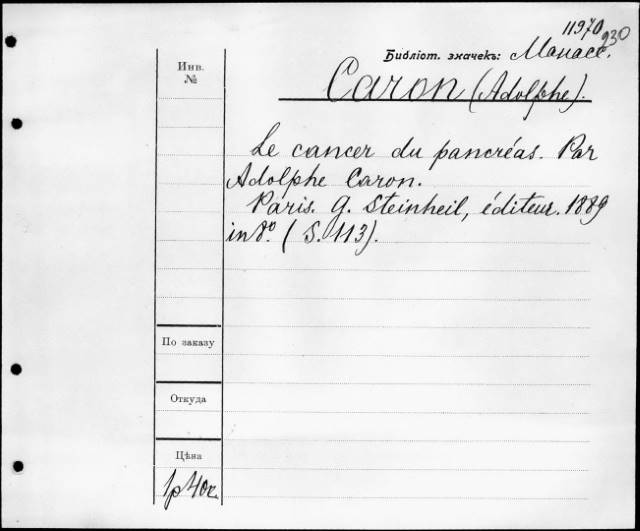 11970
930
Библіот. значекъ: Манасе.
Инв.
№
Caron (Adolphe).
Le cancer du pancréas. Par
Adolphe Caron.
Paris. G. Steinheil, éditeur. 1889
in 8º. (S. 113).
По заказу
Откуда
Цѣна
1р 40к.